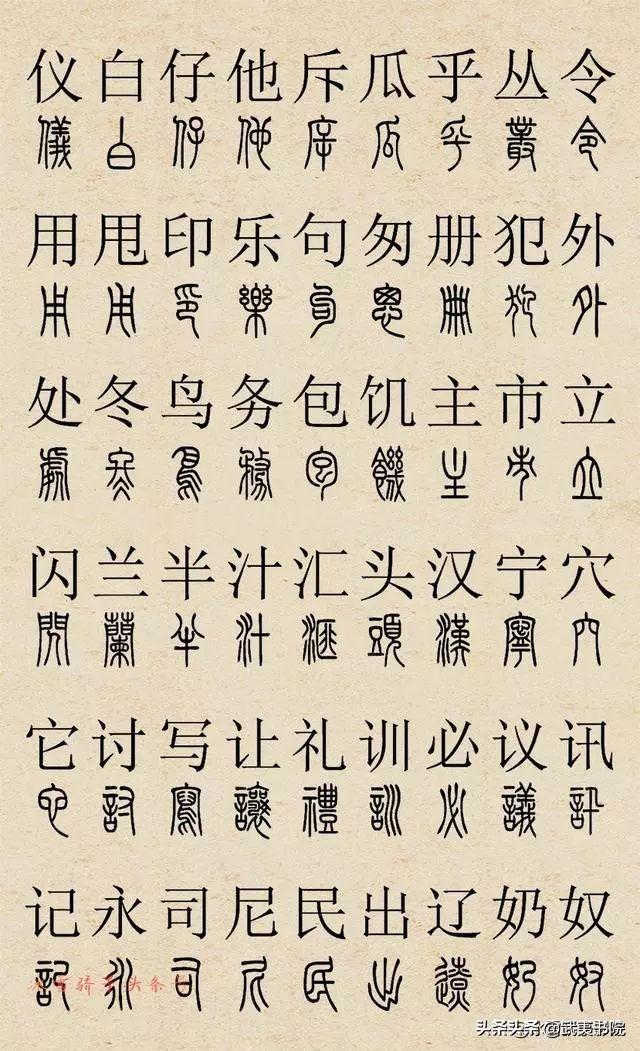 仪白仔他斥瓜乎丛令
儀白仔他斥瓜乎叢令
用甩印乐句匆册犯外
用甩印樂句悤冊犯外
处冬鸟务包饥主市立
處冬鳥務包饑主市立
闪兰半汁汇头汉宁穴
閃蘭半汁匯頭漢寧穴
它讨写让礼训必议讯
它討寫讓禮訓必議訊
记永司尼民出辽奶奴
記永司尼民出遼奶奴
头条 @武夷书院